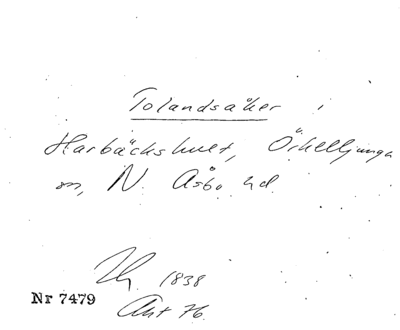 Tolandsåker i
Harbäckshult, Örkelljunga
sn, N. Åsbo hd.
1838
Nr 7479
Akt 76.